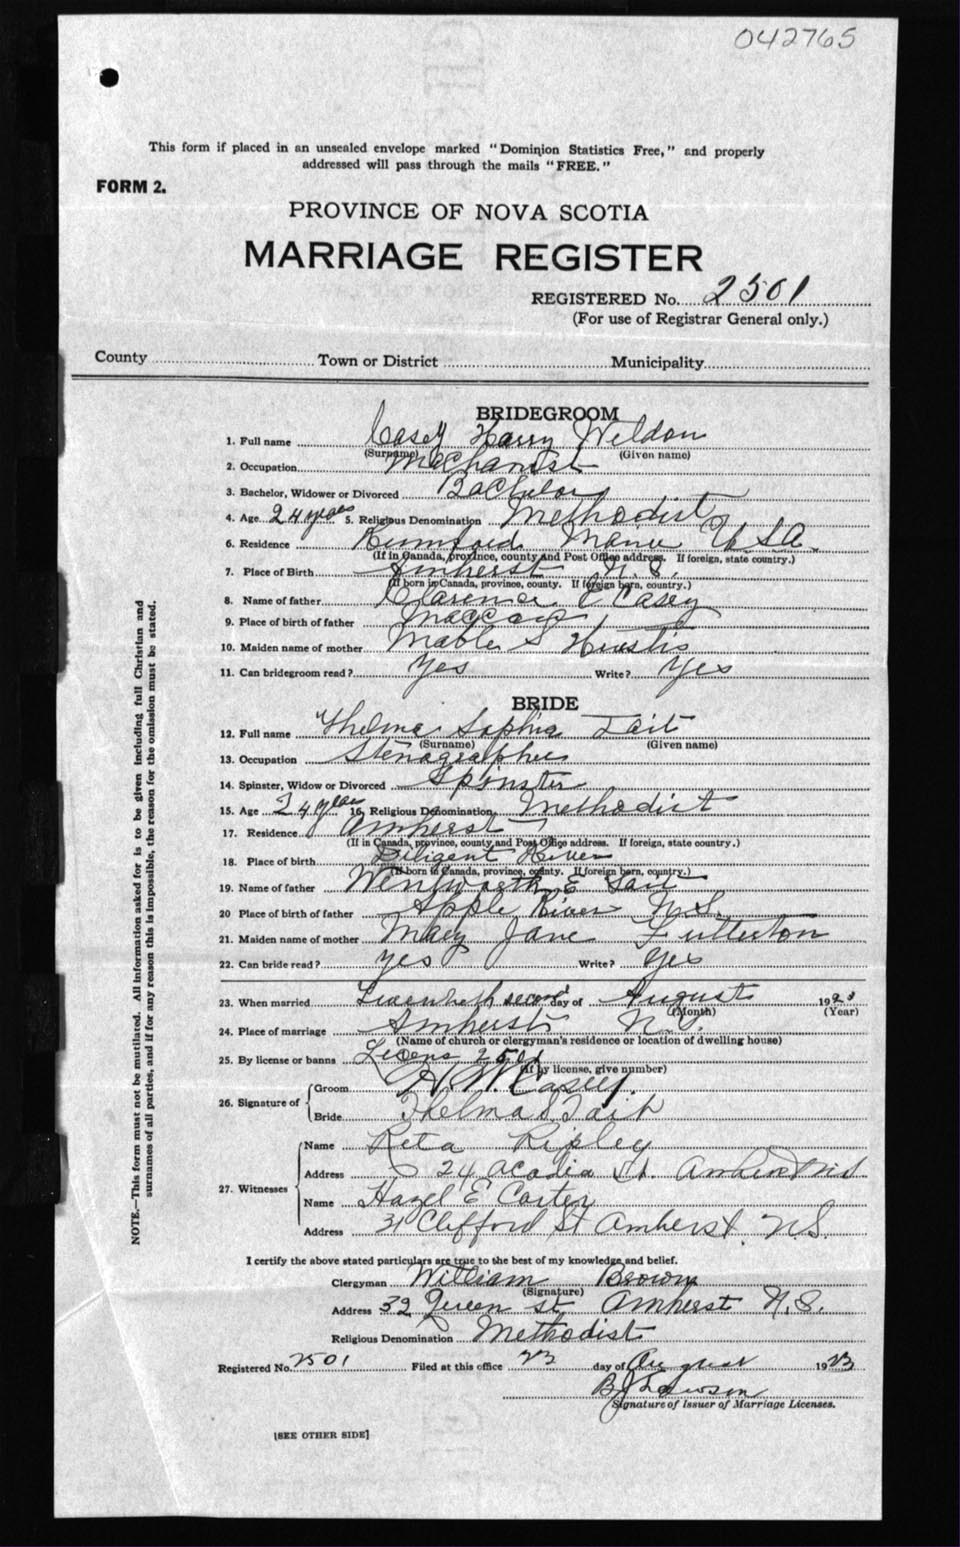 042765
This form if placed in an unsealed envelope marked "Dominion Statistics Free," and properly
addressed will pass through the mails "FREE."
FORM 2.
PROVINCE OF NOVA SCOTIA
MARRIAGE REGISTER
REGISTERED No. 2501
(For use of Registrar General only.)
County Town or District Municipality
BRIDEGROOM
1. Full name Casey Harry Weldon
(Surname) (Given name)
2. Occupation Mechanist
3. Bachelor, Widower or Divorced Bachelor
4. Age 24 years 5. Religious Denomination Methodist
6. Residence Rumford Maine U.S.A.
(If in Canada, province, county and Post Office address. If foreign, state country.)
7. Place of Birth Amherst N.S.
(If born in Canada, province, county. If foreign born, country.)
8. Name of father Clarence C Casey
9. Place of birth of father Maccan
10. Maiden name of mother Mable S Huestis
11. Can bridegroom read? Yes Write? Yes
BRIDE
12. Full name Thelma Sophia Tait
(Surname) (Given name)
13. Occupation Stenographer
14. Spinster, Widow or Divorced Spinster
15. Age 24 years 16. Religious Denomination Methodist
17. Residence Amherst
(If in Canada, province, county and Post Office address. If foreign, state country.)
18. Place of birth Diligent River
(If born in Canada, province, county. If foreign born, country.)
19. Name of father Wentworth E Tait
20 Place of birth of father Apple River N.S.
21. Maiden name of mother Mary Jane Fullerton
22. Can bride read? yes Write? yes
23. When married second day of August 1923
(Month) (Year)
24. Place of marriage Amherst N.S.
(Name of church or clergyman's residence or location of dwelling house)
25. By license or banns Licens 2501
(If by license, give number)
26. Signature of Groom H. W. Casey.
Bride Thelma S. Tait
27. Witnesses Name Reta Ripley
Address 24 Acadia St. Amherst N.S.
Name Hazel E Carter
Address 31 Clifford St Amherst, N.S.
I certify the above stated particulars are true to the best of my knowledge and belief.
Clergyman William Brown
(Signature)
Address 32 Queen st Amherst N.S.
Religious Denomination Methodist
Registered No. 2501 Filed at this office 23 day of August 1923
Lawson
Signature of Issuer of Marriage Licenses.
[SEE OTHER SIDE]
NOTE.—This form must not be mutilated. All information asked for is to be given including full Christian and
surnames of all parties, and if for any reason this is impossible, the reason for the omission must be stated.